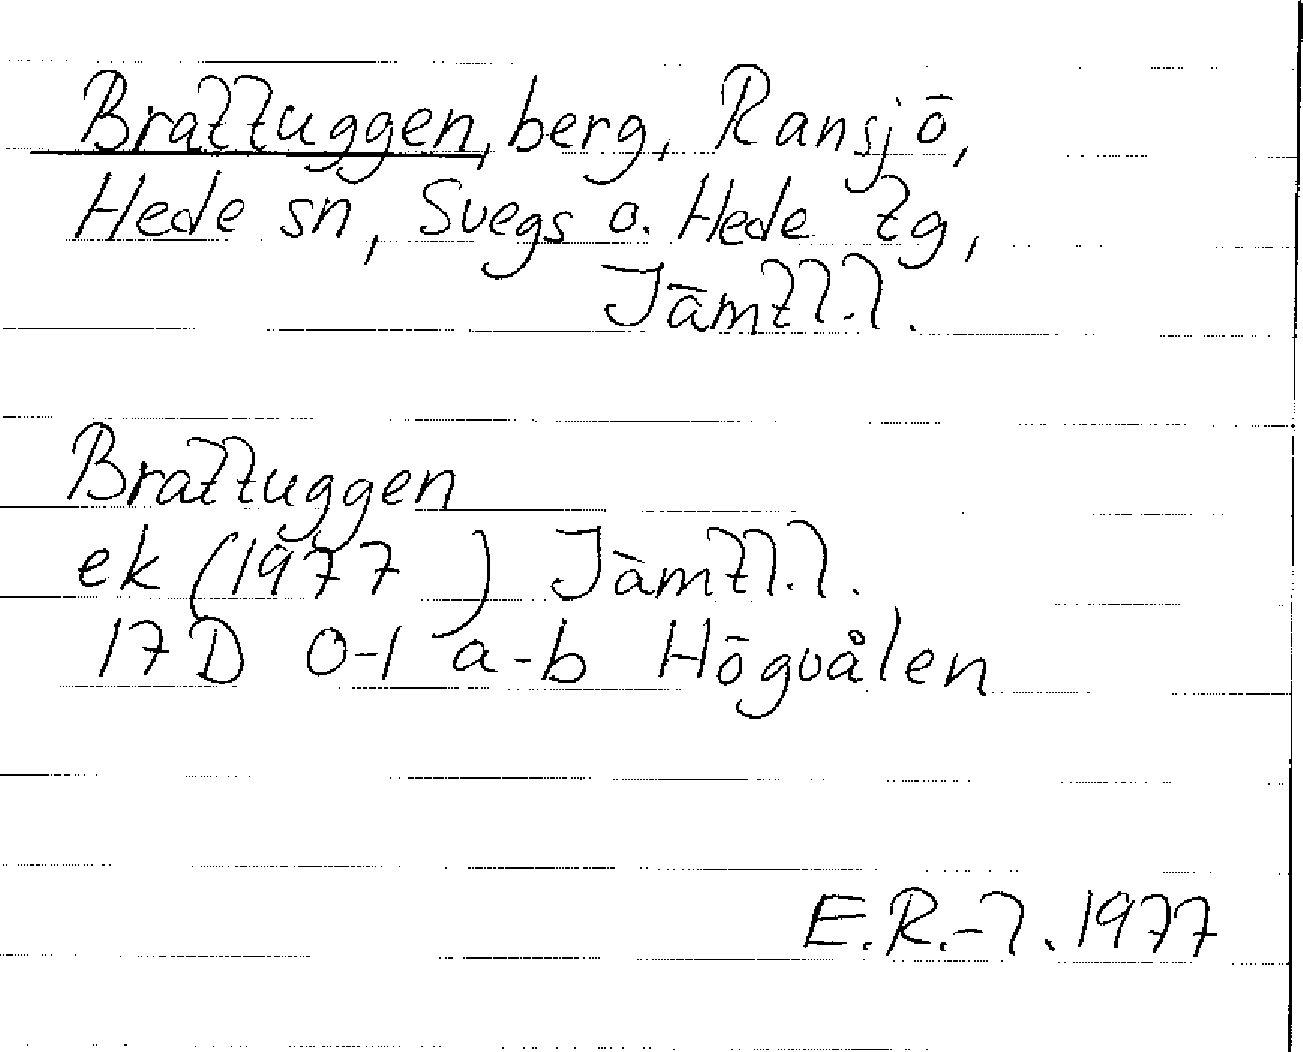 Brattuggen, berg, Ransjö,
Hede sn, Svegs o. Hede tg,
Jämtl.l.
Brattuggen
ek (1977) Jämtl.l.
17D 0-1 a-b Högvålen
E.R.-l. 1977